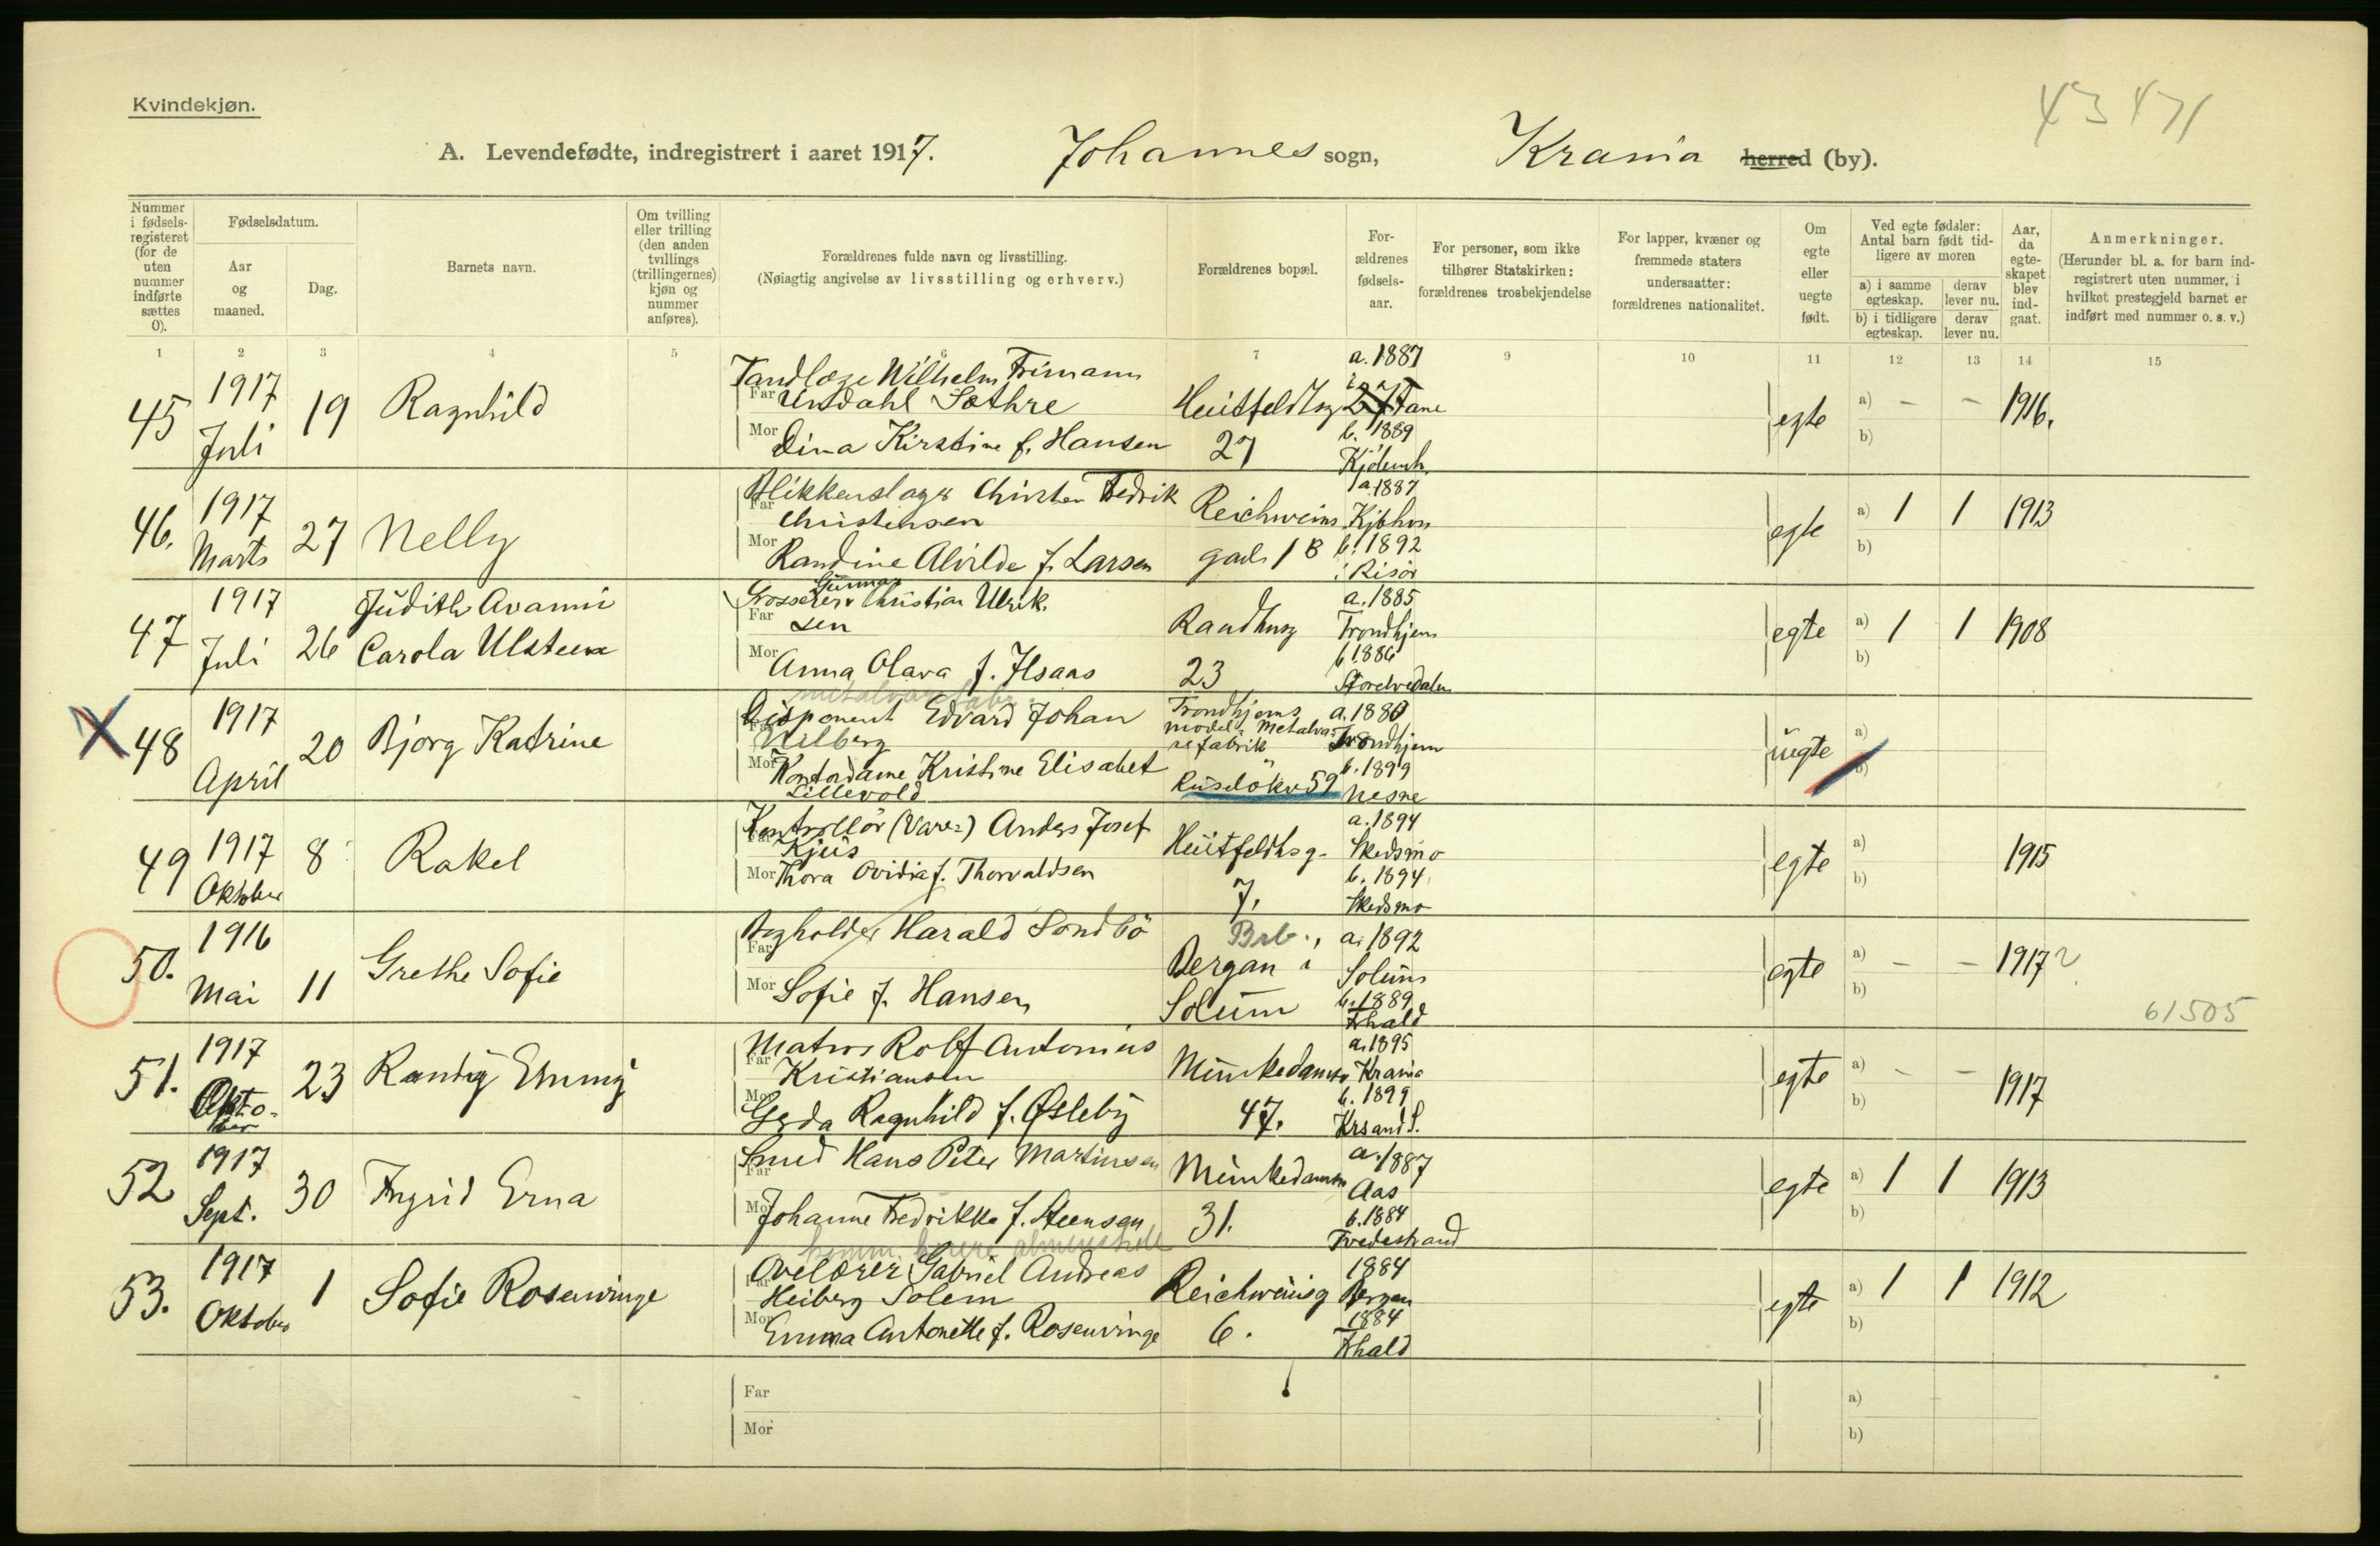 Kvindekjøn.
43471
A. Levendefødte, indregistrert i aaret 1917. Johannes sogn, Krania herred (by).
Nummer i fødselsregisteret (for de uten nummer indførte sættes 0).
Fødselsdatum.
Aar og maaned.
Dag.
Barnets navn.
Om tvilling eller trilling (den anden tvillings (trillingernes) kjøn og nummer anføres).
Forældrenes fulde navn og livsstilling.
(Nøiagtig angivelse av livsstilling og erhverv.)
Forældrenes bopæl.
Forældrenes fødselsaar.
For personer, som ikke tilhører Statskirken: forældrenes trosbekjendelse
For lapper, kvæner og fremmede staters undersaatter: forældrenes nationalitet.
Om egte eller uegte født.
Ved egte fødsler: Antal barn født tidligere av moren
a) i samme egteskap. derav lever nu.
b) i tidligere egteskap. derav lever nu.
Aar, da egteskapet blev indgaat.
Anmerkninger.
(Herunder bl. a. for barn indregistrert uten nummer, i hvilket prestegjeld barnet er indført med nummer o. s. v.)
1 2 3 4 5 6 7 9 10 11 12 13 14 15
45 1917 Juli 19 Ragnhild
Tandlæge Wilhelm Frimann
Far Undahl Sæthre
Mor Dina Kirstine f. Hansen
Huitfeldtsg 27
a. 1887
Fane
b. 1889
egte a) – – 1916.
b)
46. 1917 Marts 27 Nelly
Blikkenslager Christen Fedrik
Far Christensen
Mor Randine Alvilde f. Larsen
Reichweins gade 1 B
a. 1887
Kjbhvn
b. 1892
i Risör
egte a) 1 1 1913
b)
47 1917 Juli 26 Judith Avanni
Carola Ulsteen
Gunnar
Grosserer Christian Ulrik.
Far sen
Mor Anna Olava f. Ilsaas
Raadhusg 23
a. 1885
Trondhjem
b. 1886
egte a) 1 1 1908
b)
X 48 1917 April 20 Bjorg Katrine
metalvarefabr.
Disponent Edvard Johan
Far Kilberg
Mor Kontordame Kristine Elisabet
Lillevold
Trondhjems
model: Metalva-
refabrik
Ruselökv 59
a. 1880
Trondhjem
b. 1899
Nesne
uegte a)
b)
49 1917 Oktober 8 Rakel
Kontrollör (Vare=) Anders Josef
Far Kjus
Mor Thora Ovidia f. Thorvaldsen
Huitfeldtsg. 7.
a. 1894
Skedsmo
b. 1894
Skedsmo
egte a) 1915
b)
50. 1916 Mai 11 Grethe Sofie
Bogholder Harald Sondbö
Far
Mor Sofie f. Hansen
Brb.,
Bergan i
Solum
a. 1892
Solum
b. 1889
Fhald
egte a) – – 1917 ?
b)
61505
51. 1917 Oktober 23 Randig Emmy
Matros Rolf Antonius
Far Kristiansen
Mor Gerda Ragnhild f. Østeby
Munkedamsv 47.
a. 1895
Krania
b. 1899
Krsand S.
egte a) – – 1917
b)
52 1917 Sept. 30 Ingrid Erna
Smed Hans Peter Martinsen
Far
Mor Johanne Fredrikke f. Steensen
Munkedamsv 31.
a. 1887
Aas
b. 1884
Tvedestrand
egte a) 1 1 1913
b)
53. 1917 Oktober 1 Sofie Rosenvinge
Overlærer Gabriel Andreas
Far Heiberg Solem
Mor Emma Antonette f. Rosenvinge
Reichweinsg 6.
1884
Bergen
1884
Fhald
egte a) 1 1 1912
b)
Far
Mor
a)
b)